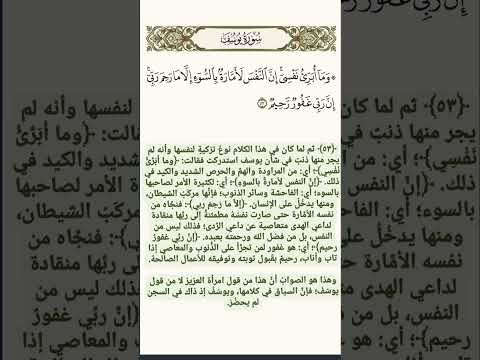 سُورَةُ يُوسُفَ
۞ وَمَا أُبَرِّئُ نَفْسِي ۚ إِنَّ النَّفْسَ لَأَمَّارَةٌ بِالسُّوءِ إِلَّا مَا رَحِمَ رَبِّي ۚ
إِنَّ رَبِّي غَفُورٌ رَحِيمٌ ٥٣
﴿٥٣﴾ ثم لما كان في هذا الكلام نوعُ تزكيةٍ لنفسها وأنه لم
يجرِ منها ذنبٌ في شأن يوسف استدركت فقالت: ﴿وما أبرِّئُ
نفسي﴾؛ أي: من المراودة والهمِّ والحرص الشديد والكيد في
ذلك. ﴿إنَّ النفس لأمارةٌ بالسوء﴾؛ أي: لكثيرة الأمر لصاحبها
بالسوء؛ أي: الفاحشة وسائر الذنوب؛ فإنَّها مركبُ الشيطان،
ومنها يدخُلُ على الإنسان. ﴿إلَّا ما رحم ربي﴾: فنجَّاه من
نفسه الأمَّارة حتى صارت نفسُهُ مطمئنةً إلى ربِّها منقادة
لداعي الهدى متعاصية عن داعي الرَّدى؛ فذلك ليس من
النفس، بل من فضل الله ورحمته بعبده. ﴿إنَّ ربِّي غفورٌ
رحيم﴾؛ أي: هو غفور لمن تجرَّأ على الذُّنوب والمعاصي إذا
تاب وأناب، رحيمٌ بقَبول توبته وتوفيقه للأعمال الصالحة.
وهذا هو الصوابُ أنَّ هذا من قول امرأة العزيز لا من قول
يوسُفَ؛ فإنَّ السياق في كلامها، ويوسُفُ إذ ذاك في السجن
لم يحضُرْ.